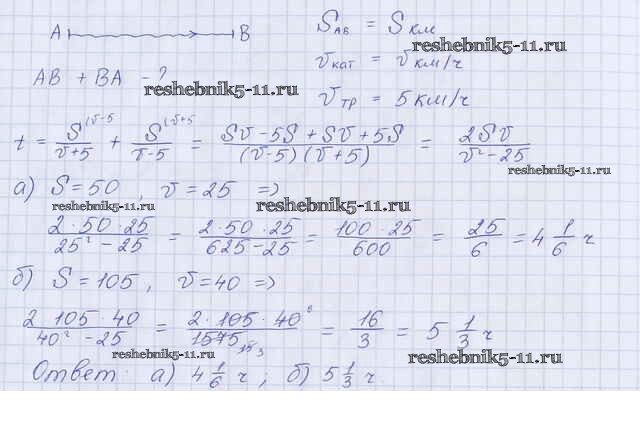 A B S_AB = S км
reshebnik5-11.ru
v_кат = v км/ч
AB + BA - ?
reshebnik5-11.ru
v_тр = 5 км/ч
t = S^(v-5/(v+5) + S^(v+5/(v-5) = (Sv - 5S + Sv + 5S)/((v-5)(v+5)) = 2Sv/(v² - 25)
reshebnik5-11.ru
а) S = 50 , v = 25 =>
reshebnik5-11.ru reshebnik5-11.ru
(2 · 50 · 25)/(25² - 25) = (2 · 50 · 25)/(625 - 25) = (100 · 25)/600 = 25/6 = 4 1/6 ч
б) S = 105 , v = 40 =>
(2 · 105 · 40)/(40² - 25) = (2 · 105 · 40 ⁸)/(1575 15 3) = 16/3 = 5 1/3 ч
reshebnik5-11.ru reshebnik5-11.ru
Ответ: а) 4 1/6 ч ; б) 5 1/3 ч.